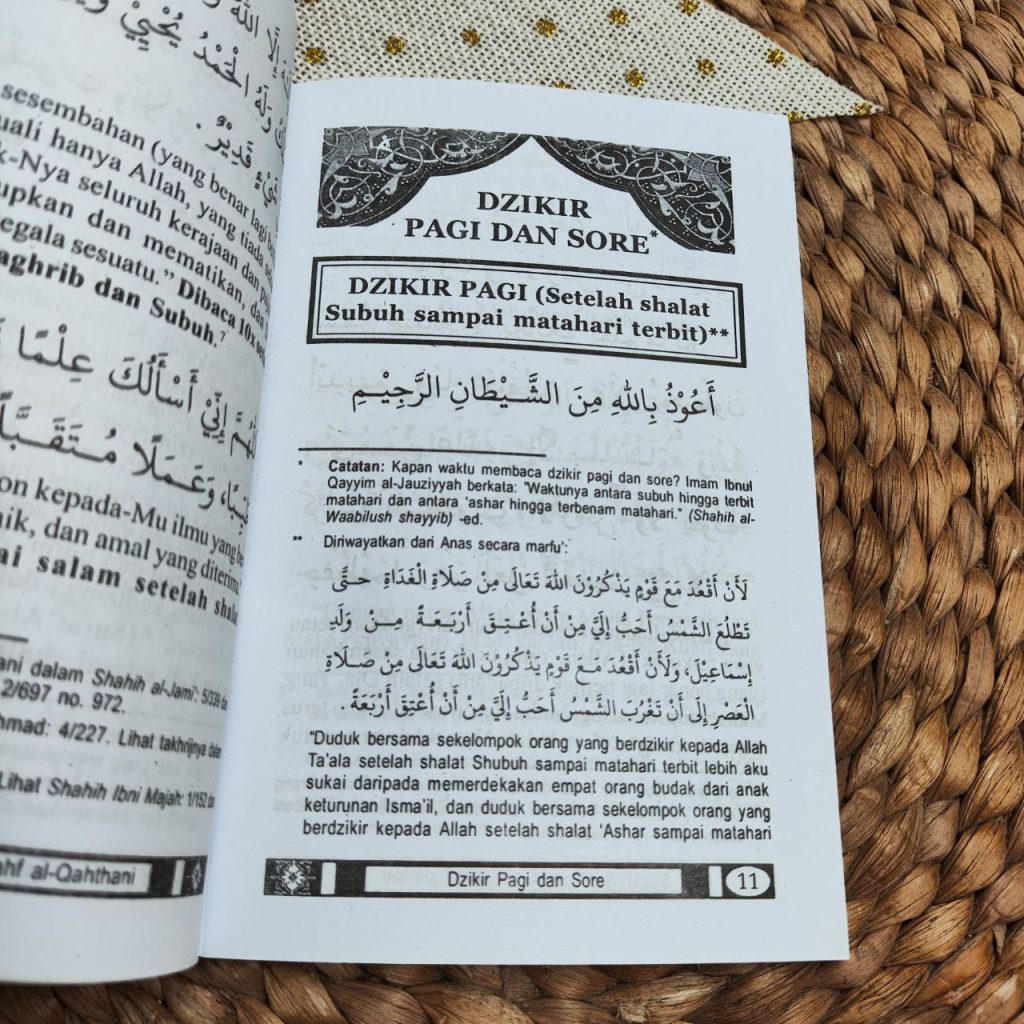 إِلَّا اللهُ
وَلَهُ الْحَمْدُ يُحْيِيْ
قَدِيْرٌ.
sesembahan (yang benar lagi
hanya Allah, yang tiada
-Nya seluruh kerajaan dan
dan mematikan, dan
segala sesuatu." Dibaca 10x
dan Subuh.7
إِنِّيْ أَسْأَلُكَ عِلْمًا
وَعَمَلًا مُتَقَبَّلًا
kepada-Mu ilmu yang
dan amal yang diterima
salam setelah
dalam Shahih al-Jami': 5/339
2/697 no. 972.
4/227. Lihat takhrijnya dalam
Lihat Shahih Ibni Majah: 1/152
al-Qahthani
DZIKIR
PAGI DAN SORE*
DZIKIR PAGI (Setelah shalat
Subuh sampai matahari terbit)**
أَعُوْذُ بِاللهِ مِنَ الشَّيْطَانِ الرَّجِيْمِ
* Catatan: Kapan waktu membaca dzikir pagi dan sore? Imam Ibnul
Qayyim al-Jauziyyah berkata: "Waktunya antara subuh hingga terbit
matahari dan antara 'ashar hingga terbenam matahari." (Shahih al-
Waabilush shayyib) -ed.
** Diriwayatkan dari Anas secara marfu':
لَأَنْ أَقْعُدَ مَعَ قَوْمٍ يَذْكُرُوْنَ اللهَ تَعَالَى مِنْ صَلَاةِ الْغَدَاةِ حَتَّى
تَطْلُعَ الشَّمْسُ أَحَبُّ إِلَيَّ مِنْ أَنْ أُعْتِقَ أَرْبَعَةً مِنْ وَلَدِ
إِسْمَاعِيْلَ، وَلَأَنْ أَقْعُدَ مَعَ قَوْمٍ يَذْكُرُوْنَ اللهَ تَعَالَى مِنْ صَلَاةِ
الْعَصْرِ إِلَى أَنْ تَغْرُبَ الشَّمْسُ أَحَبُّ إِلَيَّ مِنْ أَنْ أُعْتِقَ أَرْبَعَةً.
"Duduk bersama sekelompok orang yang berdzikir kepada Allah
Ta'ala setelah shalat Shubuh sampai matahari terbit lebih aku
sukai daripada memerdekakan empat orang budak dari anak
keturunan Isma'il, dan duduk bersama sekelompok orang yang
berdzikir kepada Allah setelah shalat 'Ashar sampai matahari
Dzikir Pagi dan Sore 11